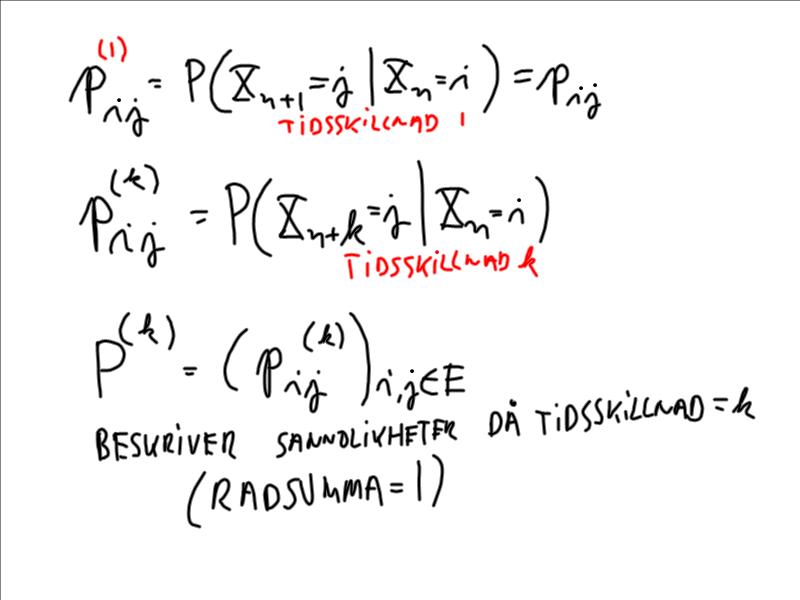 p_{ij}^{(1)} = P(X_{n+1}=j | X_n=i) = p_{ij}
TIDSSKILLNAD 1
p_{ij}^{(k)} = P(X_{n+k}=j | X_n=i)
TIDSSKILLNAD k
P^{(k)} = (p_{ij}^{(k)})_{i,j∈E}
BESKRIVER SANNOLIKHETER DÅ TIDSSKILLNAD=k
(RADSUMMA=1)